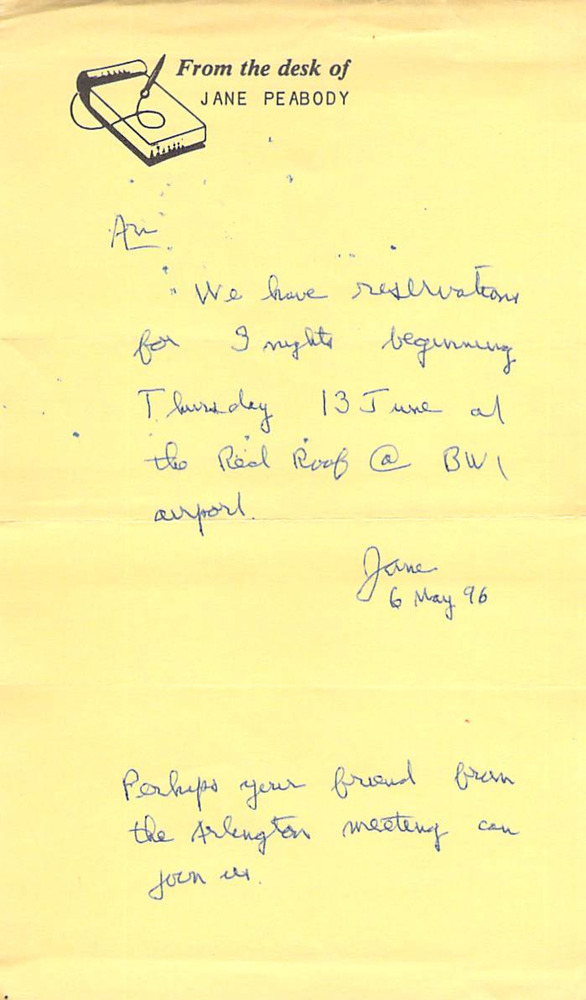 From the desk of
JANE PEABODY
Ari
We have reservations
for 3 nights beginning
Thursday 13 June at
the Red Roof @ BWI
airport.
Jane
6 May 96
Perhaps your friend from
the Arlington meeting can
join us.